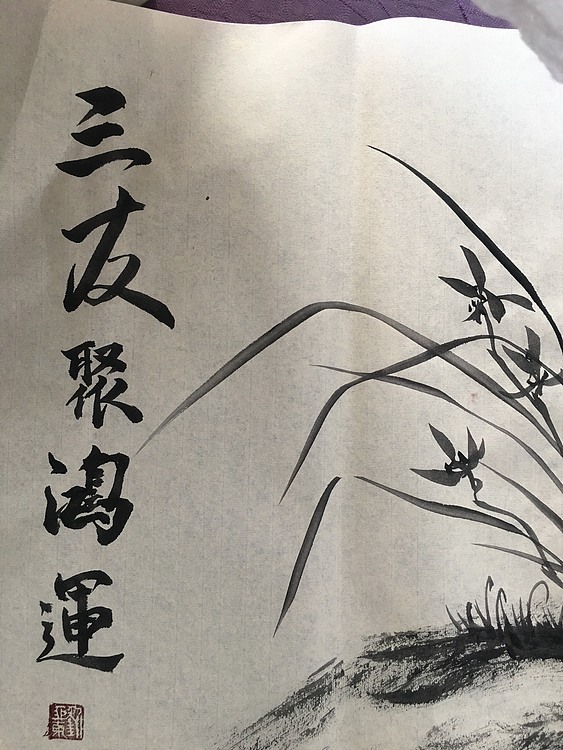 三友聚鴻運